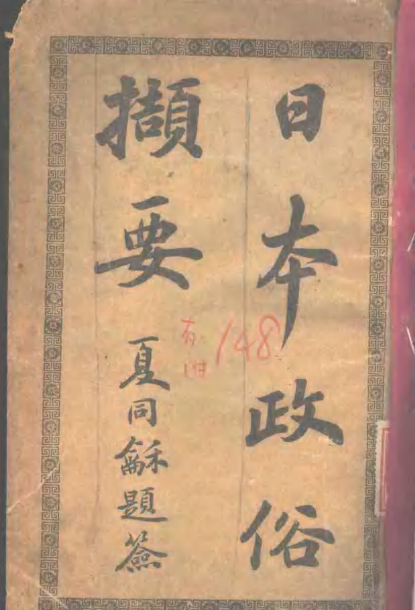 日本政俗
擷要
夏同龢題簽
148